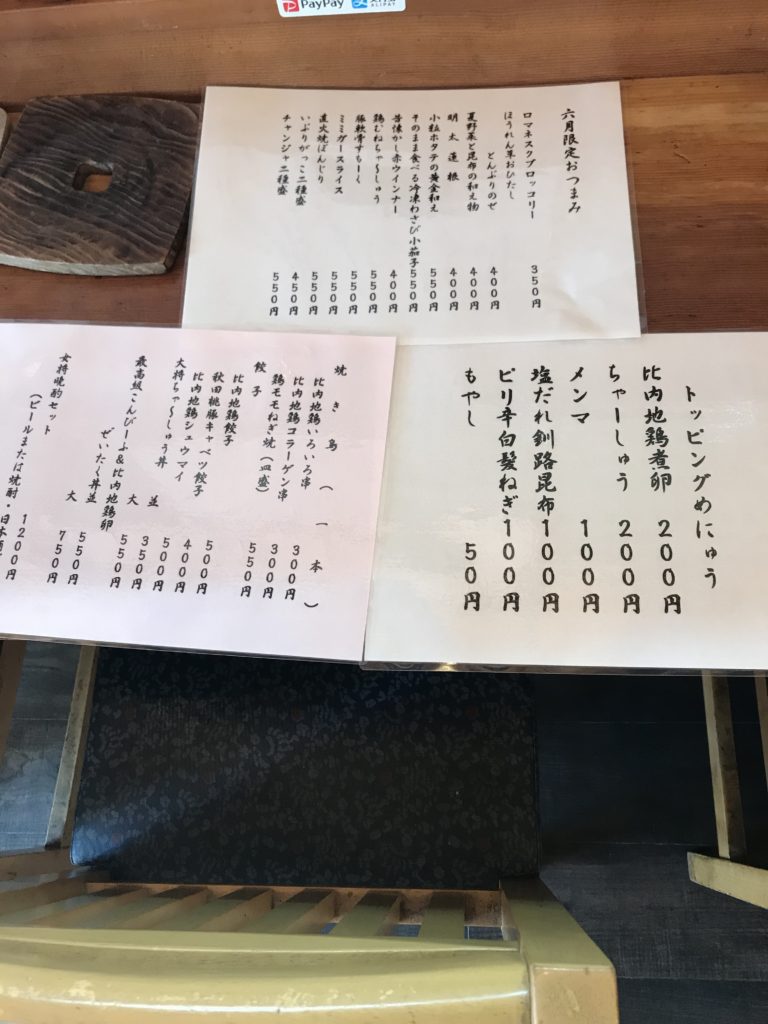 PayPay
ALIPAY
六月限定おつまみ
ロマネスクブロッコリー 350円
ほうれん草おひたし
とんぶりのせ 400円
夏野菜と昆布の和え物 400円
明太蓮根 400円
小粒ホタテの黄金和え 550円
そのまま食べる冷凍わさび小茄子 550円
昔懐かし赤ウインナー 400円
鶏むねちゃ〜しゅう 550円
豚軟骨すもーく 550円
ミミガースライス 550円
直火焼ぼんじり 550円
いぶりがっこ二種盛 450円
チャンジャ二種盛 550円
焼き鳥(一本)
比内地鶏いろいろ串 300円
比内地鶏コラーゲン串 300円
鶏モモねぎ焼(皿盛) 550円
餃子
比内地鶏餃子 500円
秋田桃豚キャベツ餃子 400円
比内地鶏シュウマイ 500円
大将ちゃ〜しゅう丼 並 350円
大 550円
最高級こんびーふ&比内地鶏卵
ぜいたく丼 並 550円
大 750円
女将晩酌セット 1200円
(ビールまたは焼酎・日本酒
トッピングめにゅう
比内地鶏煮卵 200円
ちゃーしゅう 200円
メンマ 100円
塩だれ釧路昆布 100円
ピリ辛白髪ねぎ 100円
もやし 50円